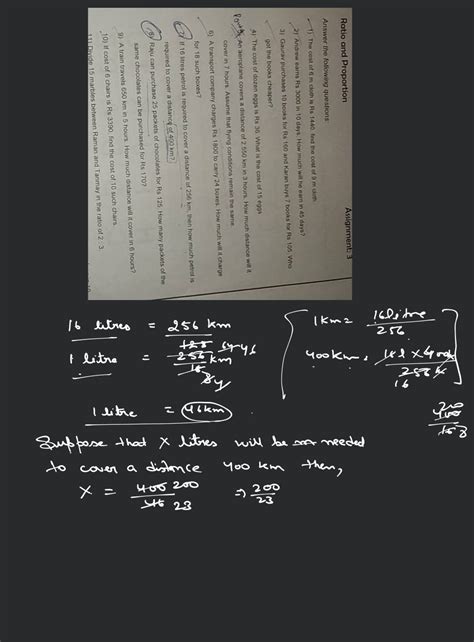 Ratio and Proportion Assignment: 3
Answer the following questions:
1) The cost of 6 m cloth is Rs 1440. find the cost of 9 m cloth.
2) Andrew earns Rs 3000 in 10 days. How much will he earn in 45 days?
3) Gaurav purchases 10 books for Rs 160 and Karan buys 7 books for Rs 105. Who
got the books cheaper?
4) The cost of dozen eggs is Rs 36. What is the cost of 15 eggs
5) An aeroplane covers a distance of 2,550 km in 3 hours. How much distance will it
cover in 7 hours. Assume that flying conditions remain the same.
6) A transport company charges Rs 1800 to carry 24 boxes. How much will it charge
for 18 such boxes?
7) If 16 litres petrol is required to cover a distance of 256 km, then how much petrol is
required to cover a distance of 400 km?
8) Raju can purchase 25 packets of chocolates for Rs 125. How many packets of the
same chocolates can be purchased for Rs 170?
9) A train travels 650 km in 5 hours. How much distance will it cover in 6 hours?
10) If cost of 6 chairs is Rs 3390, find the cost of 10 such chairs.
11) Divide 15 marbles between Raman and Tanmay in the ratio of 2 : 3.
16 litres = 256 km
1 litre = 256 km
16
1 litre = 46 km
1 km = 16 litre
256
400 km =
256
16
Suppose that X litres will be needed
to cover a distance 400 km then,
X = 400 200
46 23
⇒ 200
23